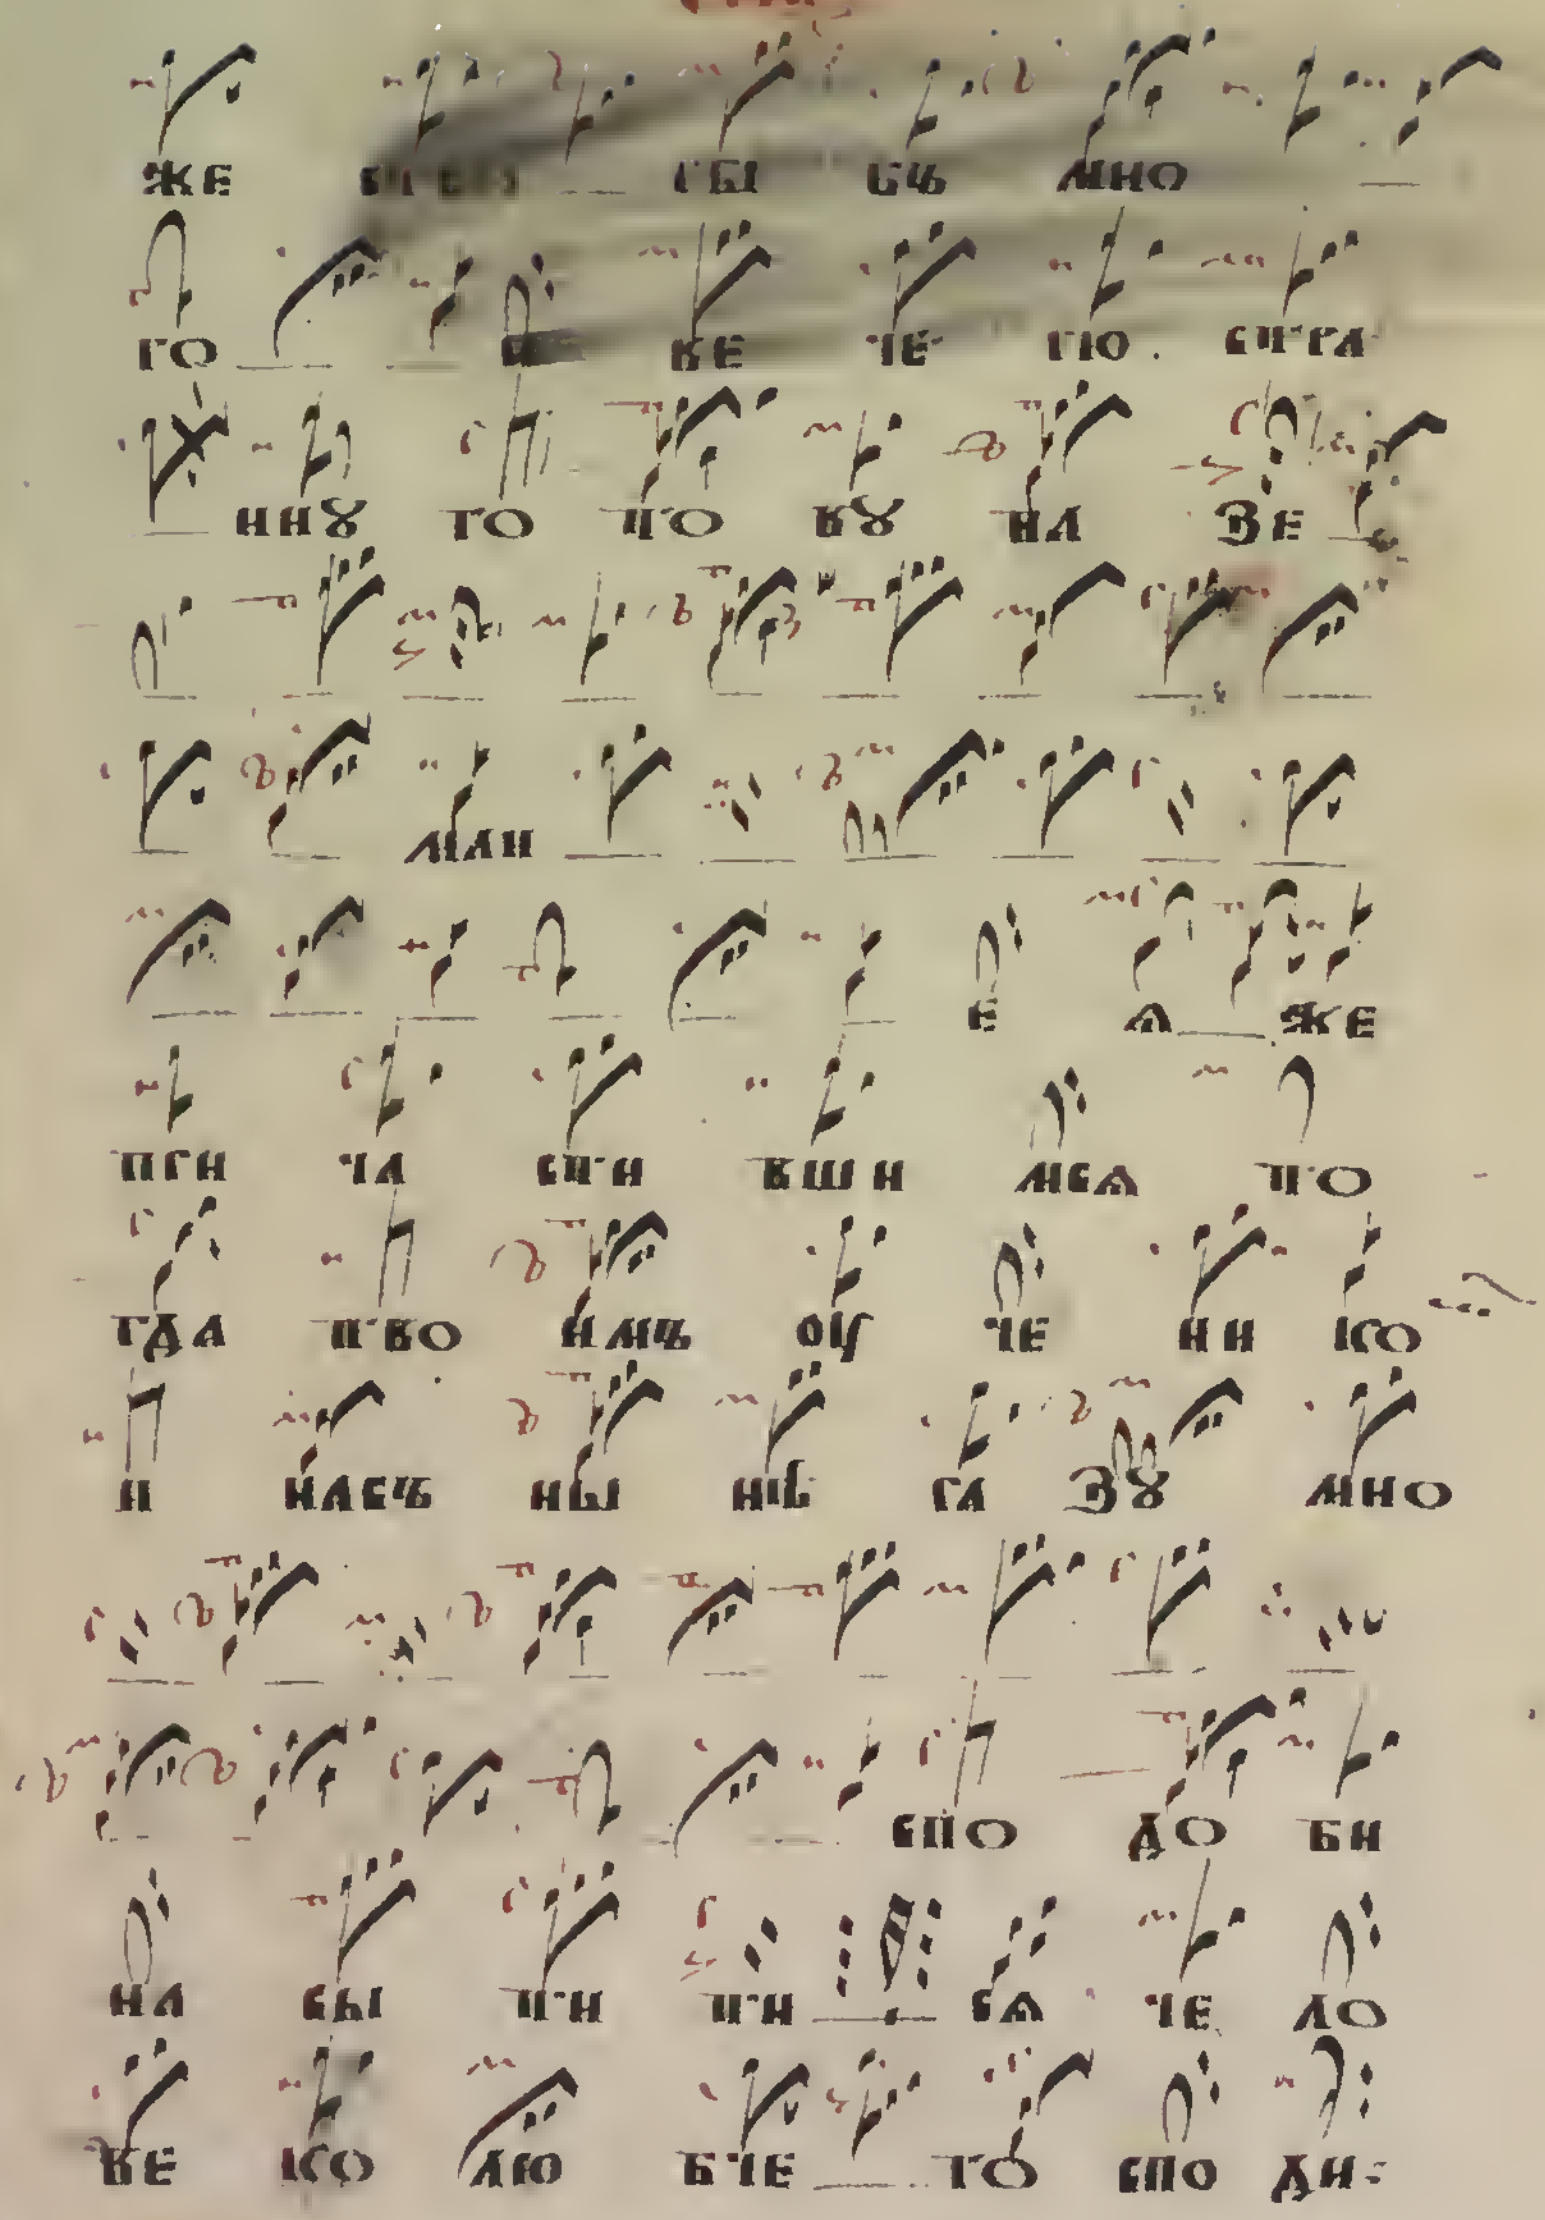 же ры бъ мно
го ве че рю . стра
ннꙋ го то вꙋ на зе
мли
е ѧ же
при ча сти вши мсѧ то
гда тво имъ оуче ни ко
и насъ ны нѣ ра зꙋ мно
спо до би
на сы ти ти сѧ че ло
ве ко лю бче го спо ди